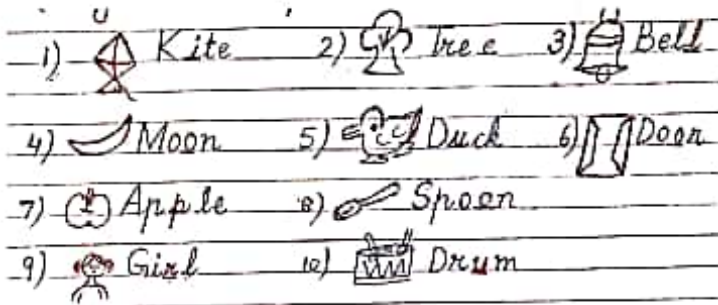 1) Kite 2) Tree 3) Bell
4) Moon 5) Duck 6) Door
7) Apple 8) Spoon
9) Girl 10) Drum